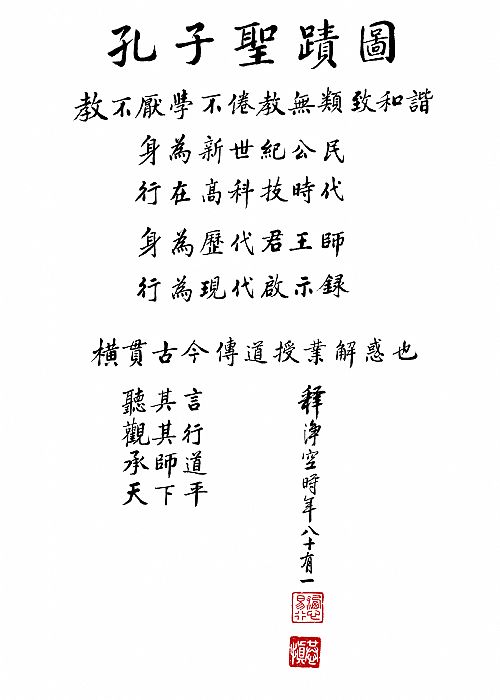 孔子聖蹟圖
教不厭學不倦教無類致和諧
身為新世紀公民
行在高科技時代
身為歷代君王師
行為現代啟示錄
橫貫古今傳道授業解惑也
聽其言
觀其行
承師道
天下平
釋淨空時年八十有一